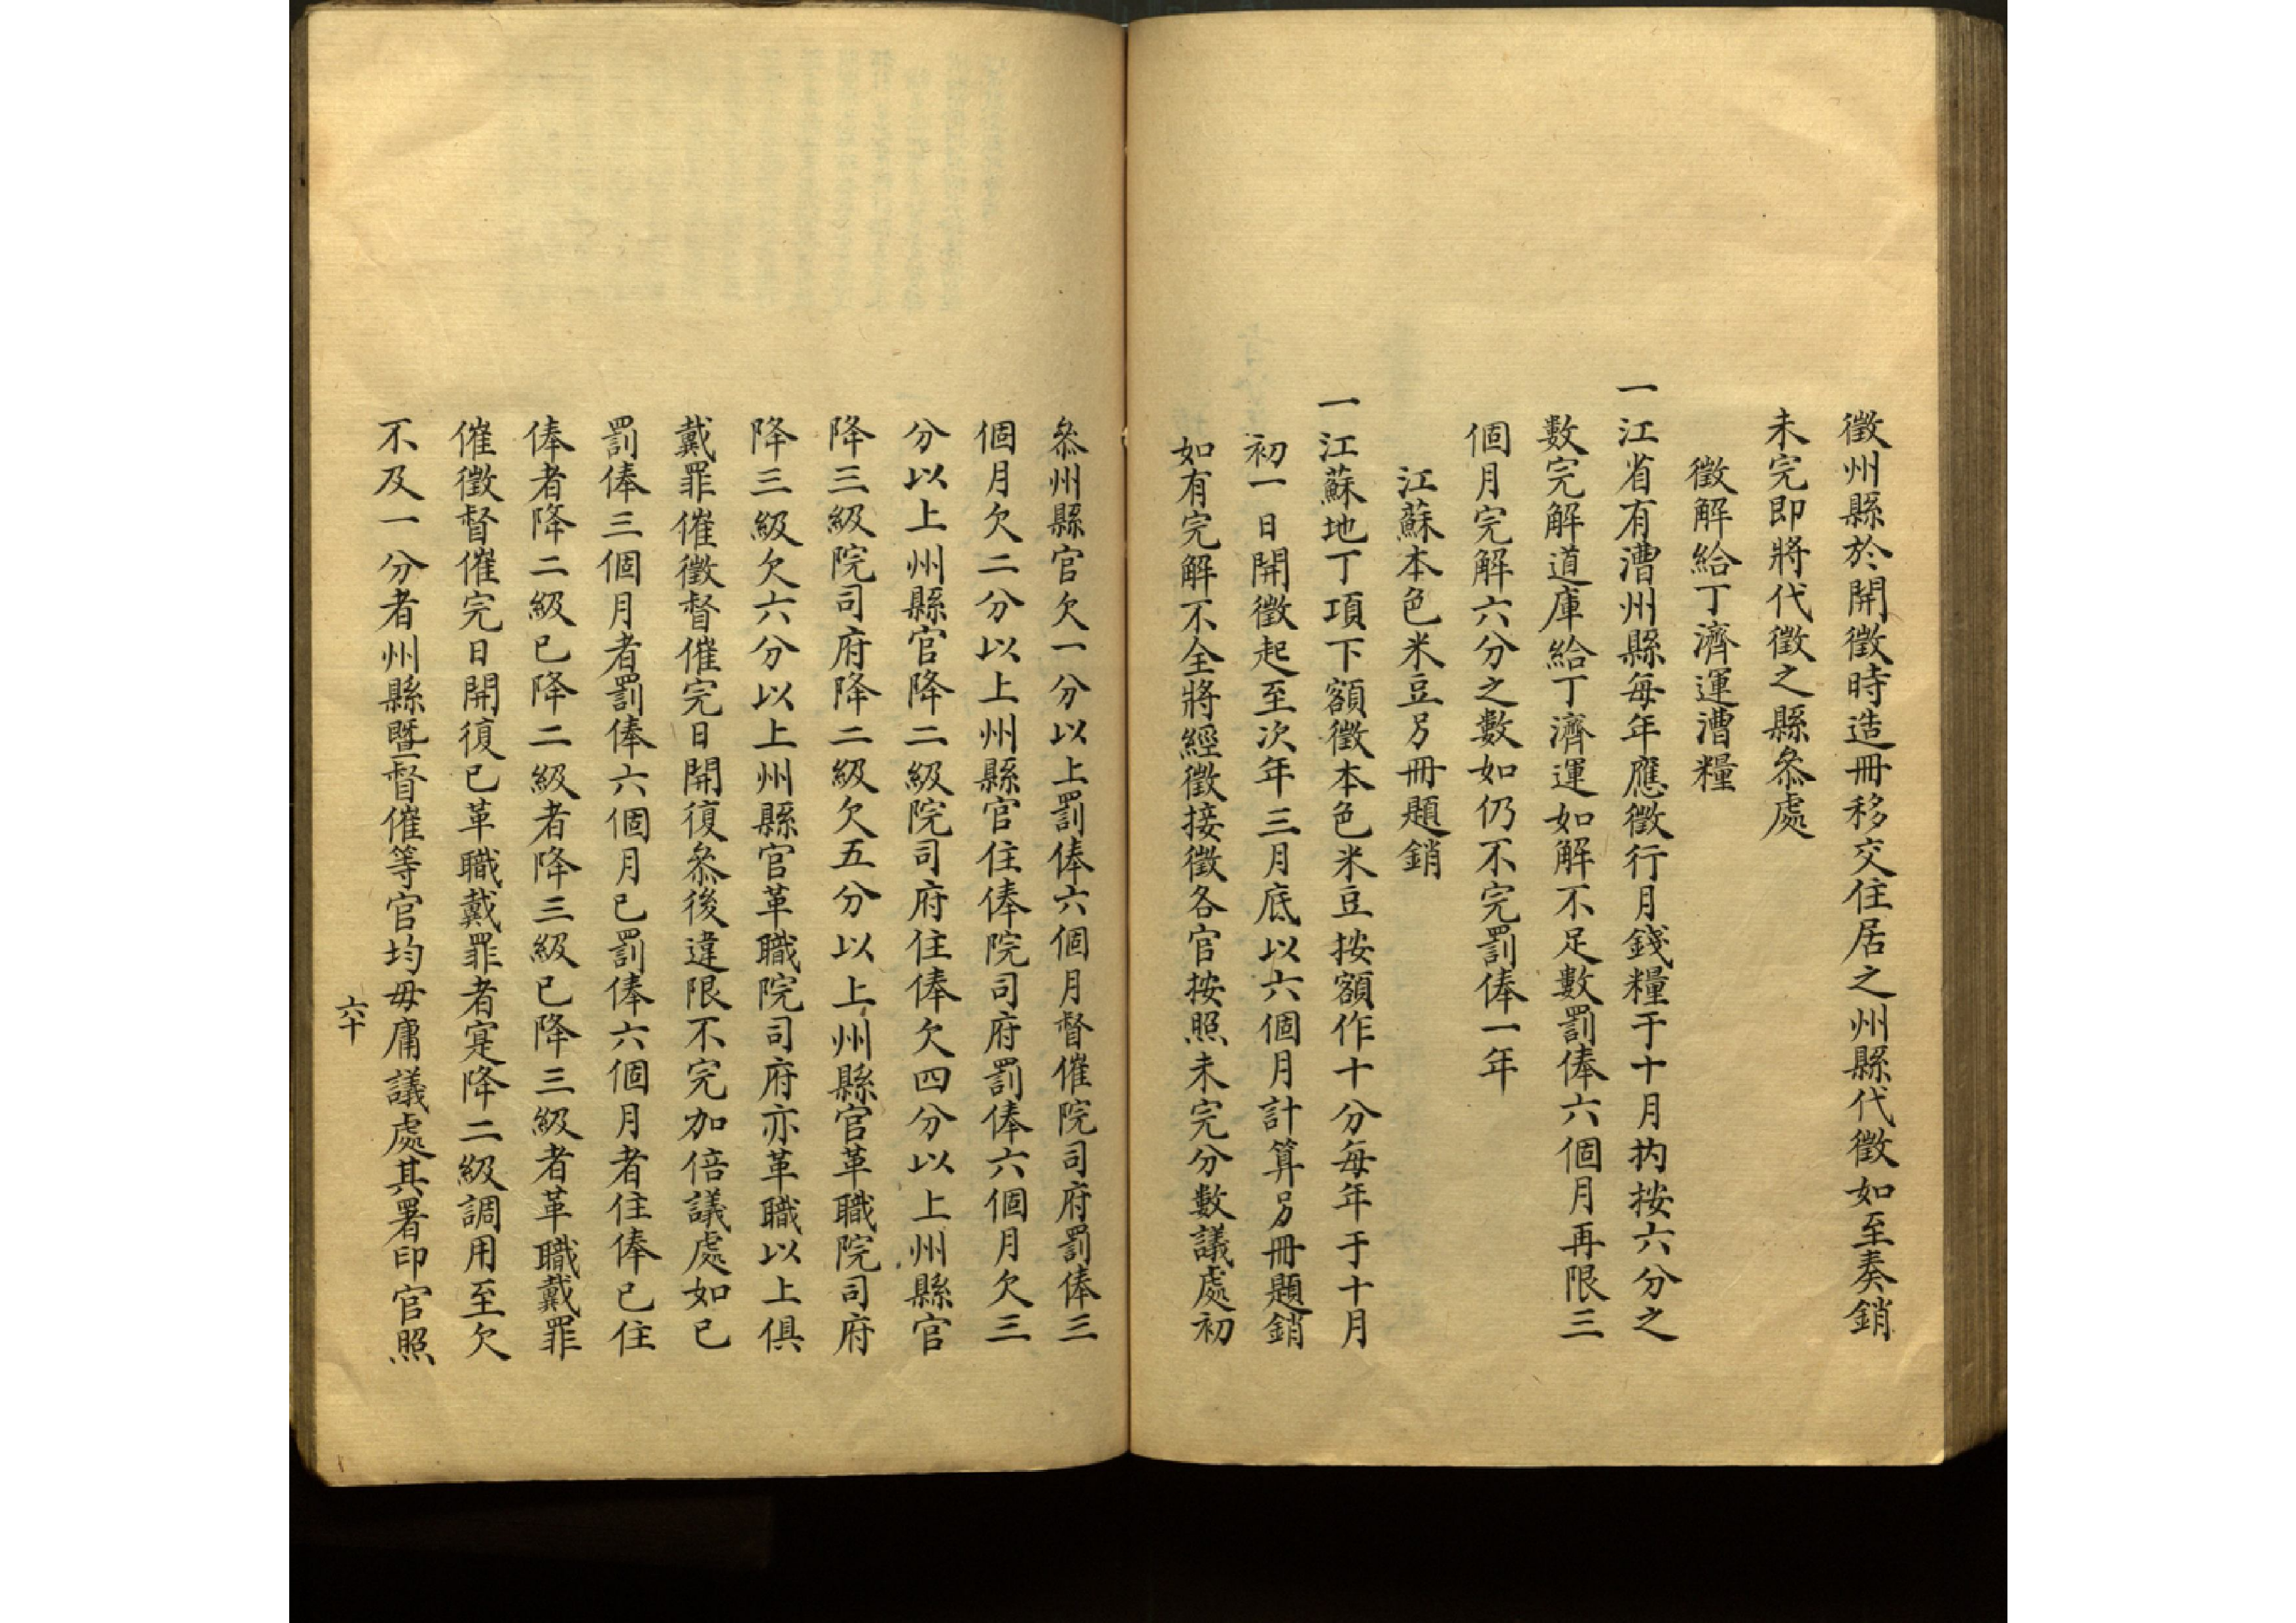 徵州縣於開徵時造冊移交住居之州縣代徵如至奏銷
未完即將代徵之縣叅處
徵解給丁濟運漕糧
一江省有漕州縣每年應徵行月錢糧于十月內按六分之
數完解道庫給丁濟運如解不足數罰俸六個月再限三
個月完解六分之數如仍不完罰俸一年
江蘇本色米豆另冊題銷
一江蘇地丁項下額徵本色米豆按額作十分每年于十月
初一日開徵起至次年三月底以六個月計算另冊題銷
如有完解不全將經徵接徵各官按照未完分數議處初
叅州縣官欠一分以上罰俸六個月督催院司府罰俸三
個月欠二分以上州縣官住俸院司府罰俸六個月欠三
分以上州縣官降二級院司府住俸欠四分以上州縣官
降三級院司府降二級欠五分以上州縣官革職院司府
降三級欠六分以上州縣官革職院司府亦革職以上俱
戴罪催徵督催完日開復叅後違限不完加倍議處如已
罰俸三個月者罰俸六個月已罰俸六個月者住俸已住
俸者降二級已降二級者降三級已降三級者革職戴罪
催徵督催完日開復已革職戴罪者寔降二級調用至欠
不及一分者州縣暨督催等官均毋庸議處其署印官照
六十